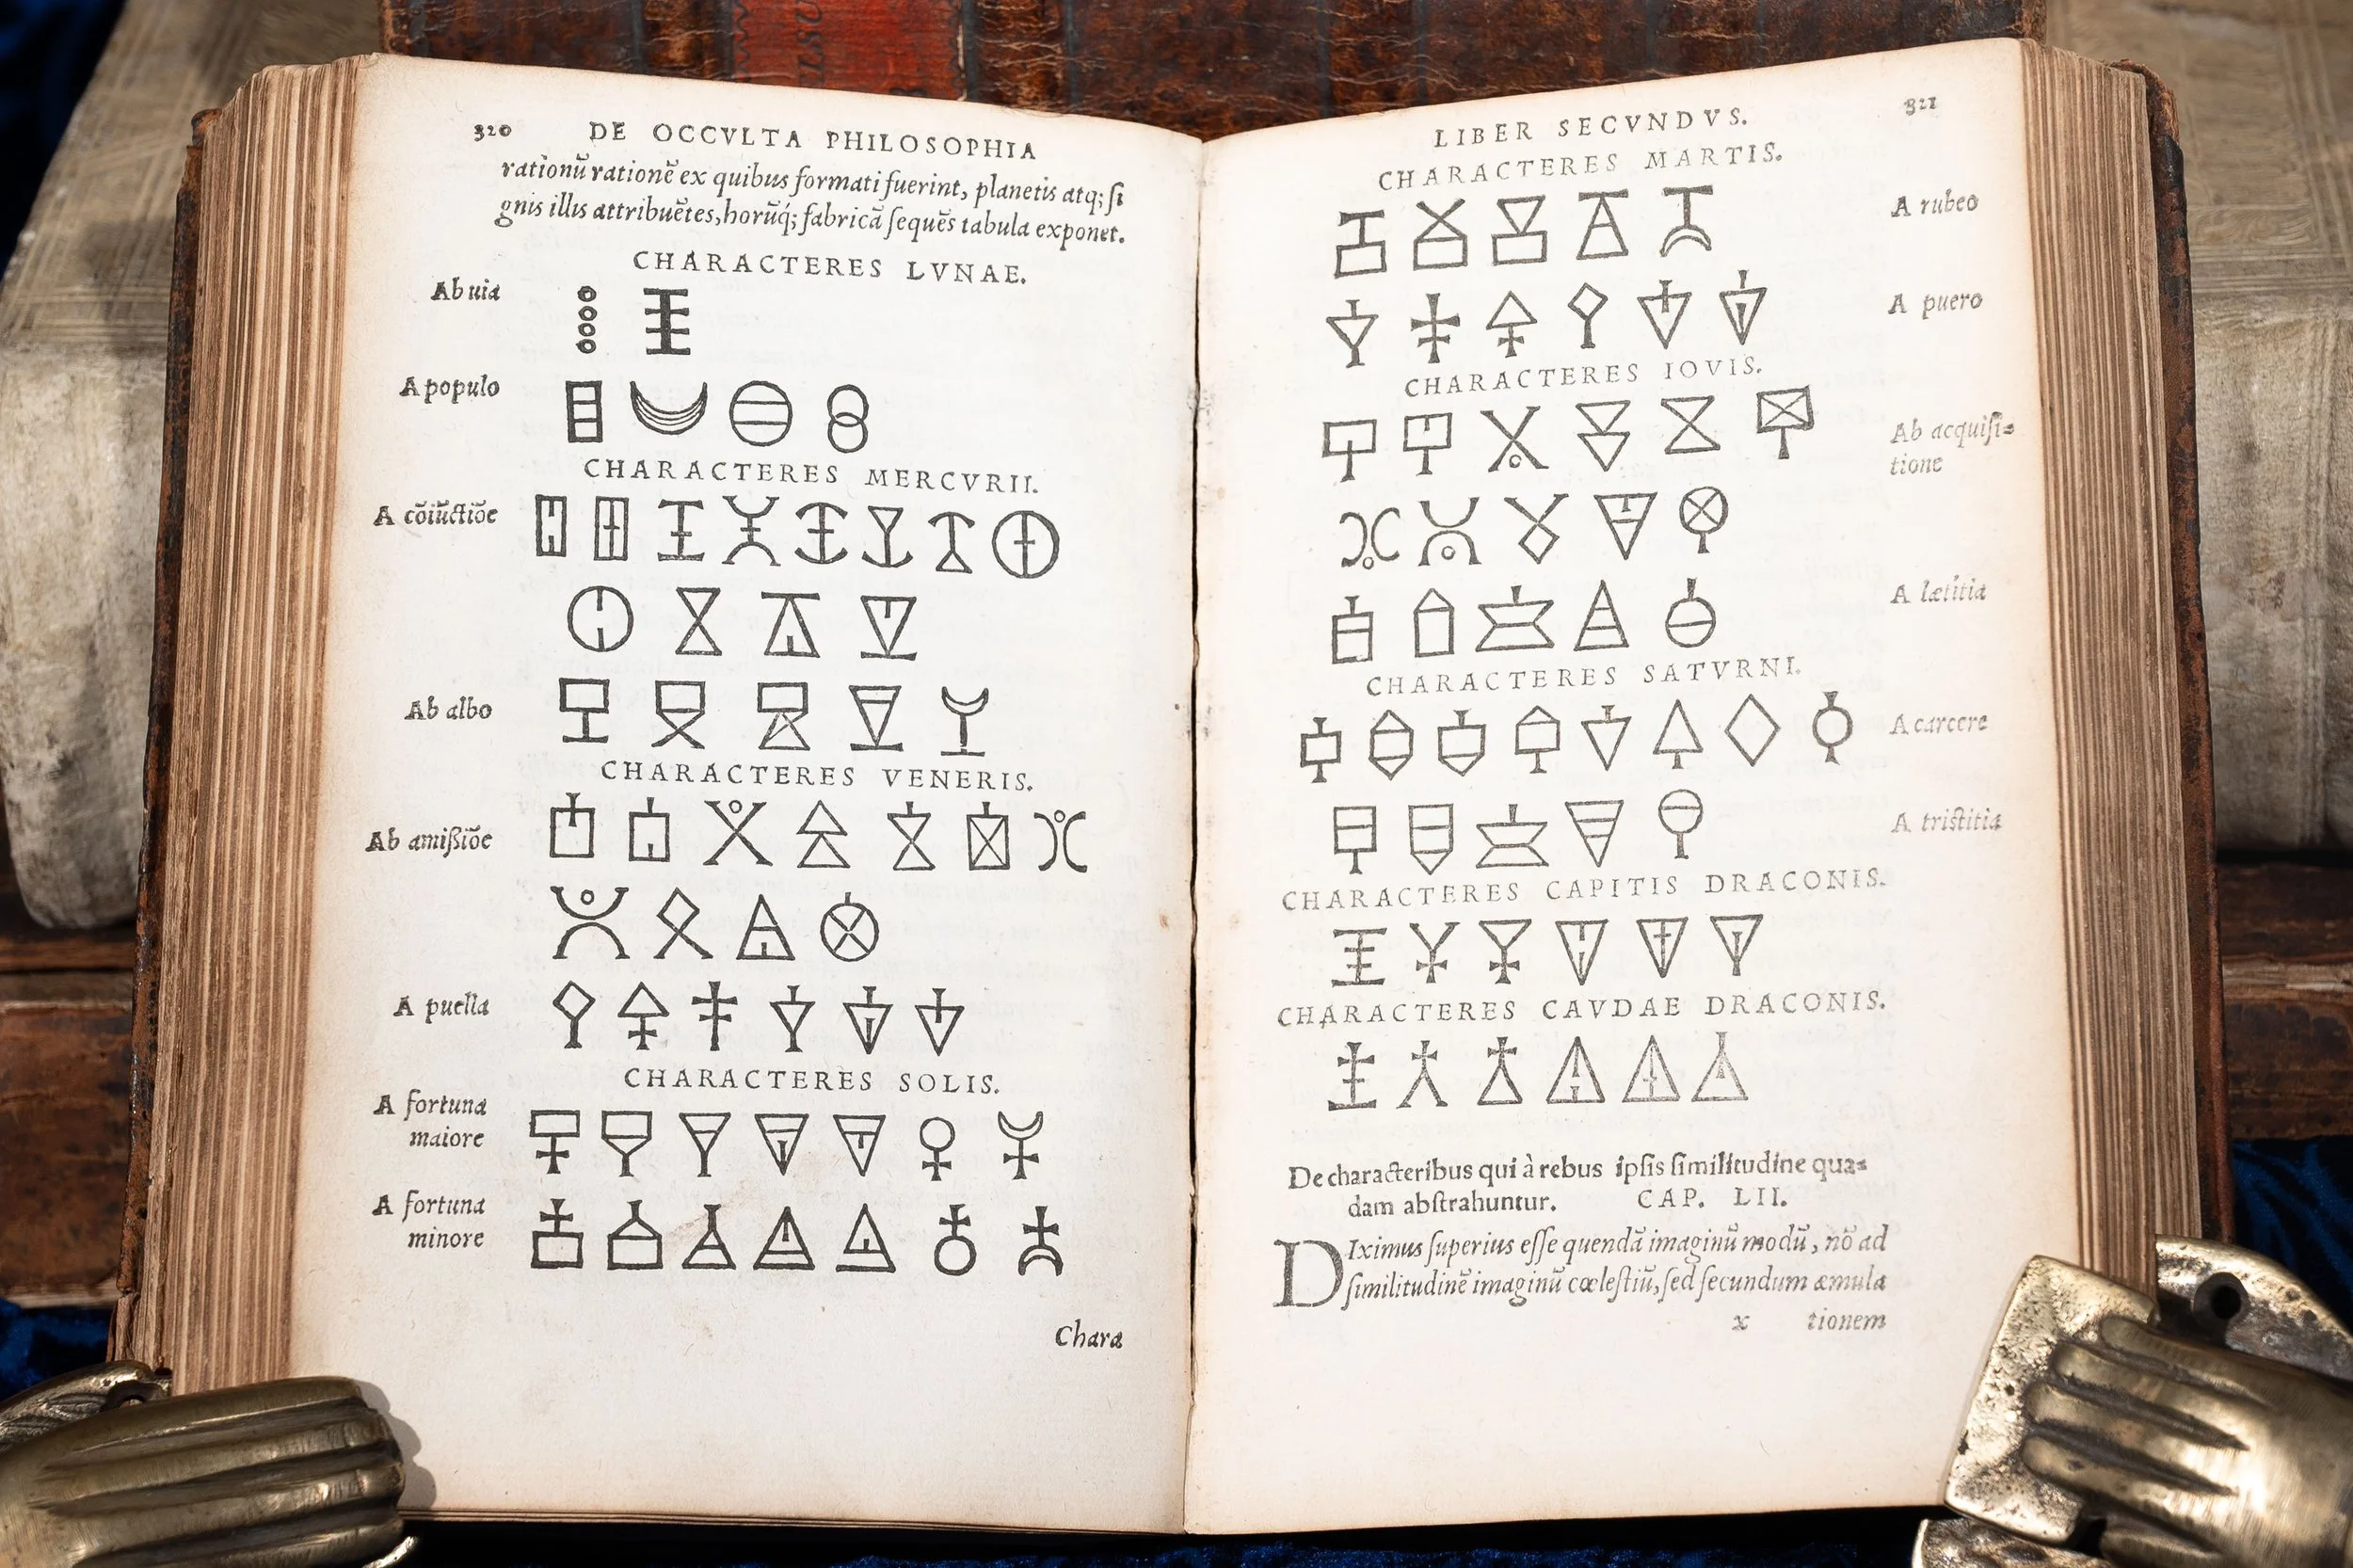 320 DE OCCVLTA PHILOSOPHIA
rationũ rationẽ ex quibus formati fuerint, planetis atq; ſi
gnis illis attribuẽtes, horũq́; fabricã ſequẽs tabula exponet.
CHARACTERES LVNAE.
Ab uia
A populo
CHARACTERES MERCVRII.
A cõiũctiõe
Ab albo
CHARACTERES VENERIS.
Ab amißiõe
A puella
CHARACTERES SOLIS.
A fortuna
maiore
A fortuna
minore
Chara
LIBER SECVNDVS. 321
CHARACTERES MARTIS.
A rubeo
A puero
CHARACTERES IOVIS.
Ab acquiſi=
tione
A lætitia
CHARACTERES SATVRNI.
A carcere
A triſtitia
CHARACTERES CAPITIS DRACONIS.
CHARACTERES CAVDAE DRACONIS.
De characteribus qui à rebus ipſis ſimilitudine qua=
dam abſtrahuntur. CAP. LII.
DIximus ſuperius eſſe quendã imaginũ modũ, nõ ad
ſimilitudinẽ imaginũ cœleſtiũ, ſed ſecundum æmula
x tionem